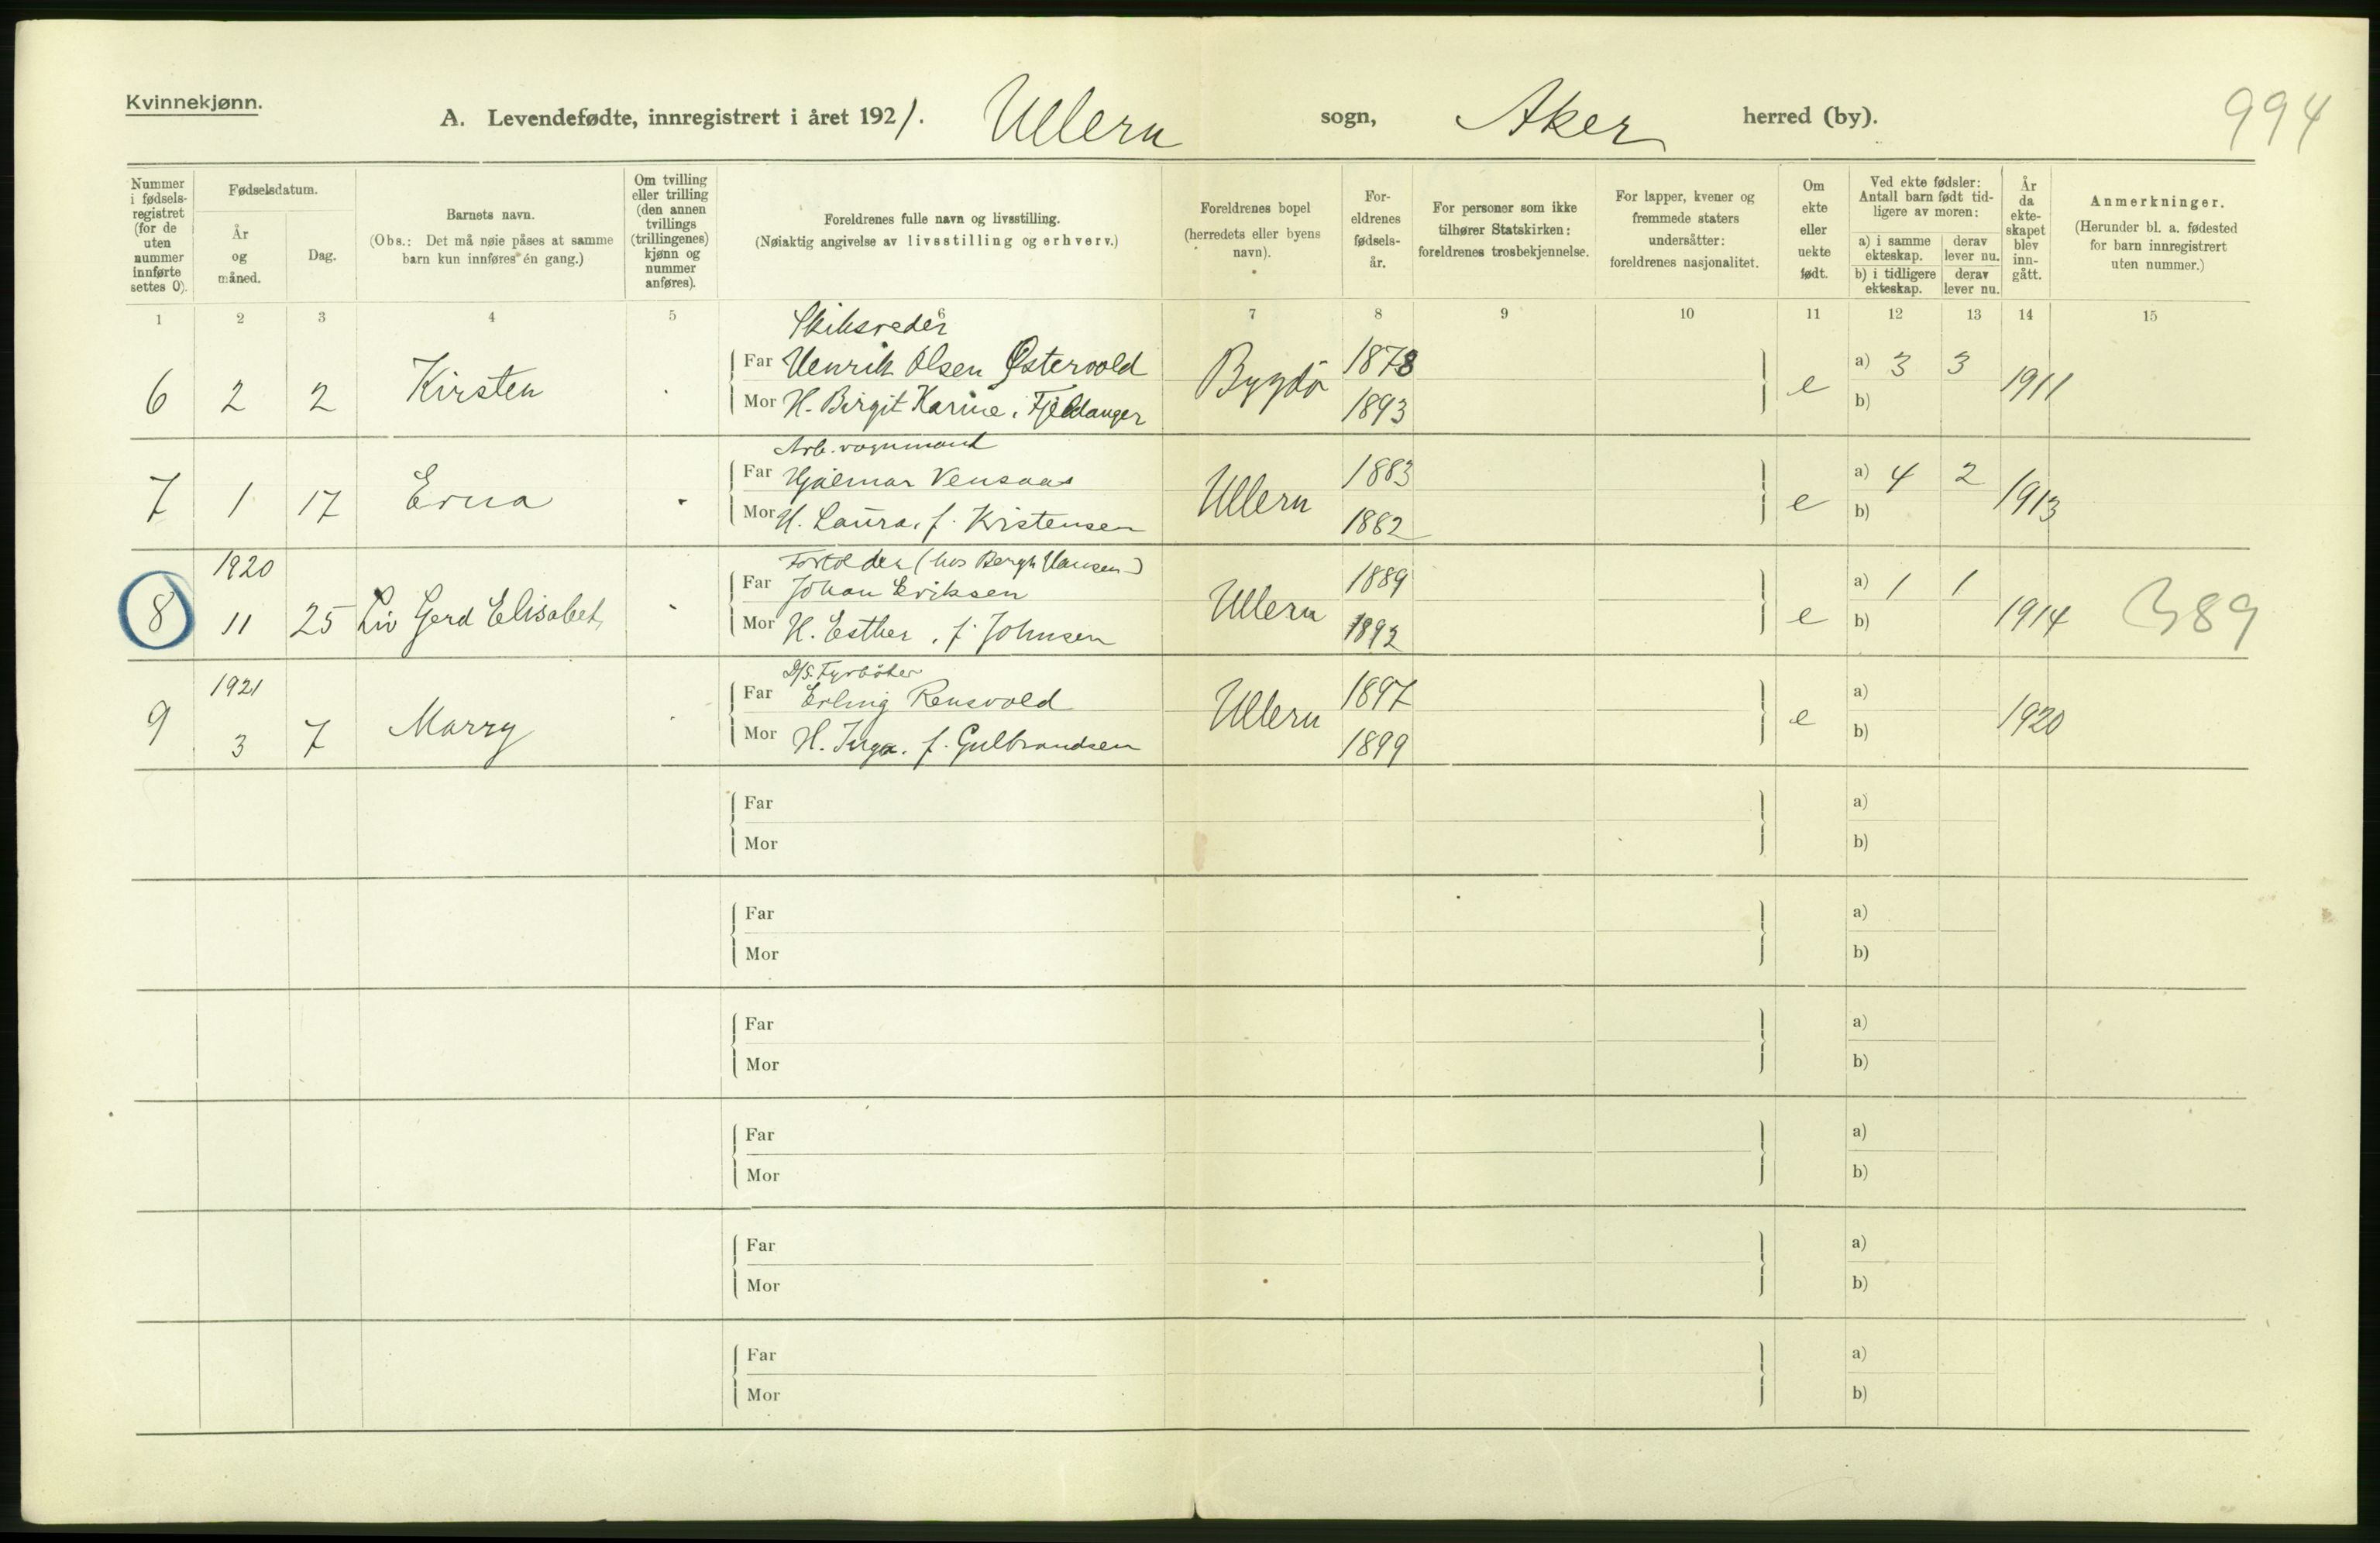 Kvinnekjønn.
994
A. Levendefødte, innregistrert i året 1921. Ullern sogn, Aker herred (by).
Nummer i fødsels-registret (for de uten nummer innførte settes 0).
Fødselsdatum.
År og måned.
Dag.
Barnets navn.
(Obs.: Det må nøie påses at samme barn kun innføres én gang.)
Om tvilling eller trilling (den annen tvillings (trillingenes) kjønn og nummer anføres).
Foreldrenes fulle navn og livsstilling.
(Nøiaktig angivelse av livsstilling og erhverv.)
Foreldrenes bopel (herredets eller byens navn).
For-eldrenes fødsels-år.
For personer som ikke tilhører Statskirken: foreldrenes trosbekjennelse.
For lapper, kvener og fremmede staters undersåtter: foreldrenes nasjonalitet.
Om ekte eller uekte født.
Ved ekte fødsler: Antall barn født tid-ligere av moren:
a) i samme ekteskap.
derav lever nu.
b) i tidligere ekteskap.
derav lever nu.
År da ekte-skapet blev inn-gått.
Anmerkninger.
(Herunder bl. a. fødested for barn innregistrert uten nummer.)
1 2 3 4 5 6 7 8 9 10 11 12 13 14 15
Skibsreder
Far Henrik Olsen Østervold 1878 a) 3 3
6 2 2 Kirsten Bygdø e 1911
Mor H. Birgit Karine, Fjeldanger 1893 b)
Arb. vognmand
Far Hjalmar Vensaas 1883 a) 4 2
7 1 17 Erna Ullern e 1913
Mor H. Laura, f. Kristensen 1882 b)
1920 Forvolder (hos Bergh Hansen)
Far Johan Eriksen 1889 a) 1 1
8 11 25 Liv Gerd Elisabet, Ullern e 1914 389
Mor H. Esther, f. Johnsen 1892 b)
1921 D/S. Fyrbøter
Far Erling Rensvold 1897 a)
9 3 7 Marry Ullern e 1920
Mor H. Inga. f. Gulbrandsen 1899 b)
Far a)
Mor b)
Far a)
Mor b)
Far a)
Mor b)
Far a)
Mor b)
Far a)
Mor b)
Far a)
Mor b)